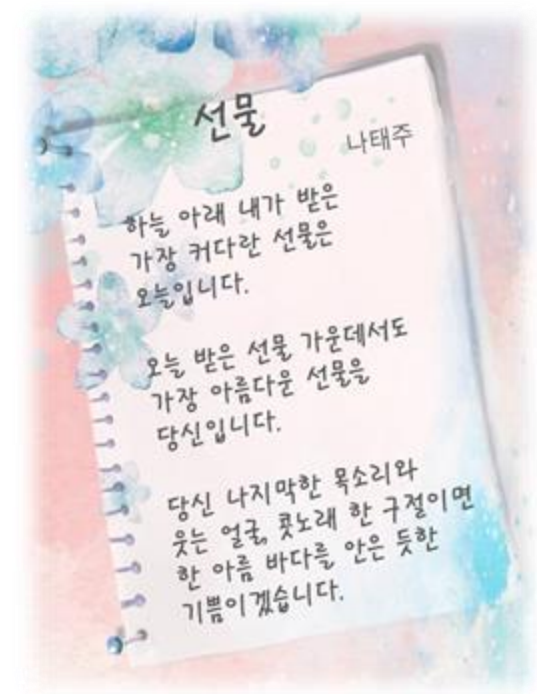 선물
나태주
하늘 아래 내가 받은
가장 커다란 선물은
오늘입니다.
오늘 받은 선물 가운데서도
가장 아름다운 선물을
당신입니다.
당신 나지막한 목소리와
웃는 얼굴, 콧노래 한 구절이면
한 아름 바다를 안은 듯한
기쁨이겠습니다.